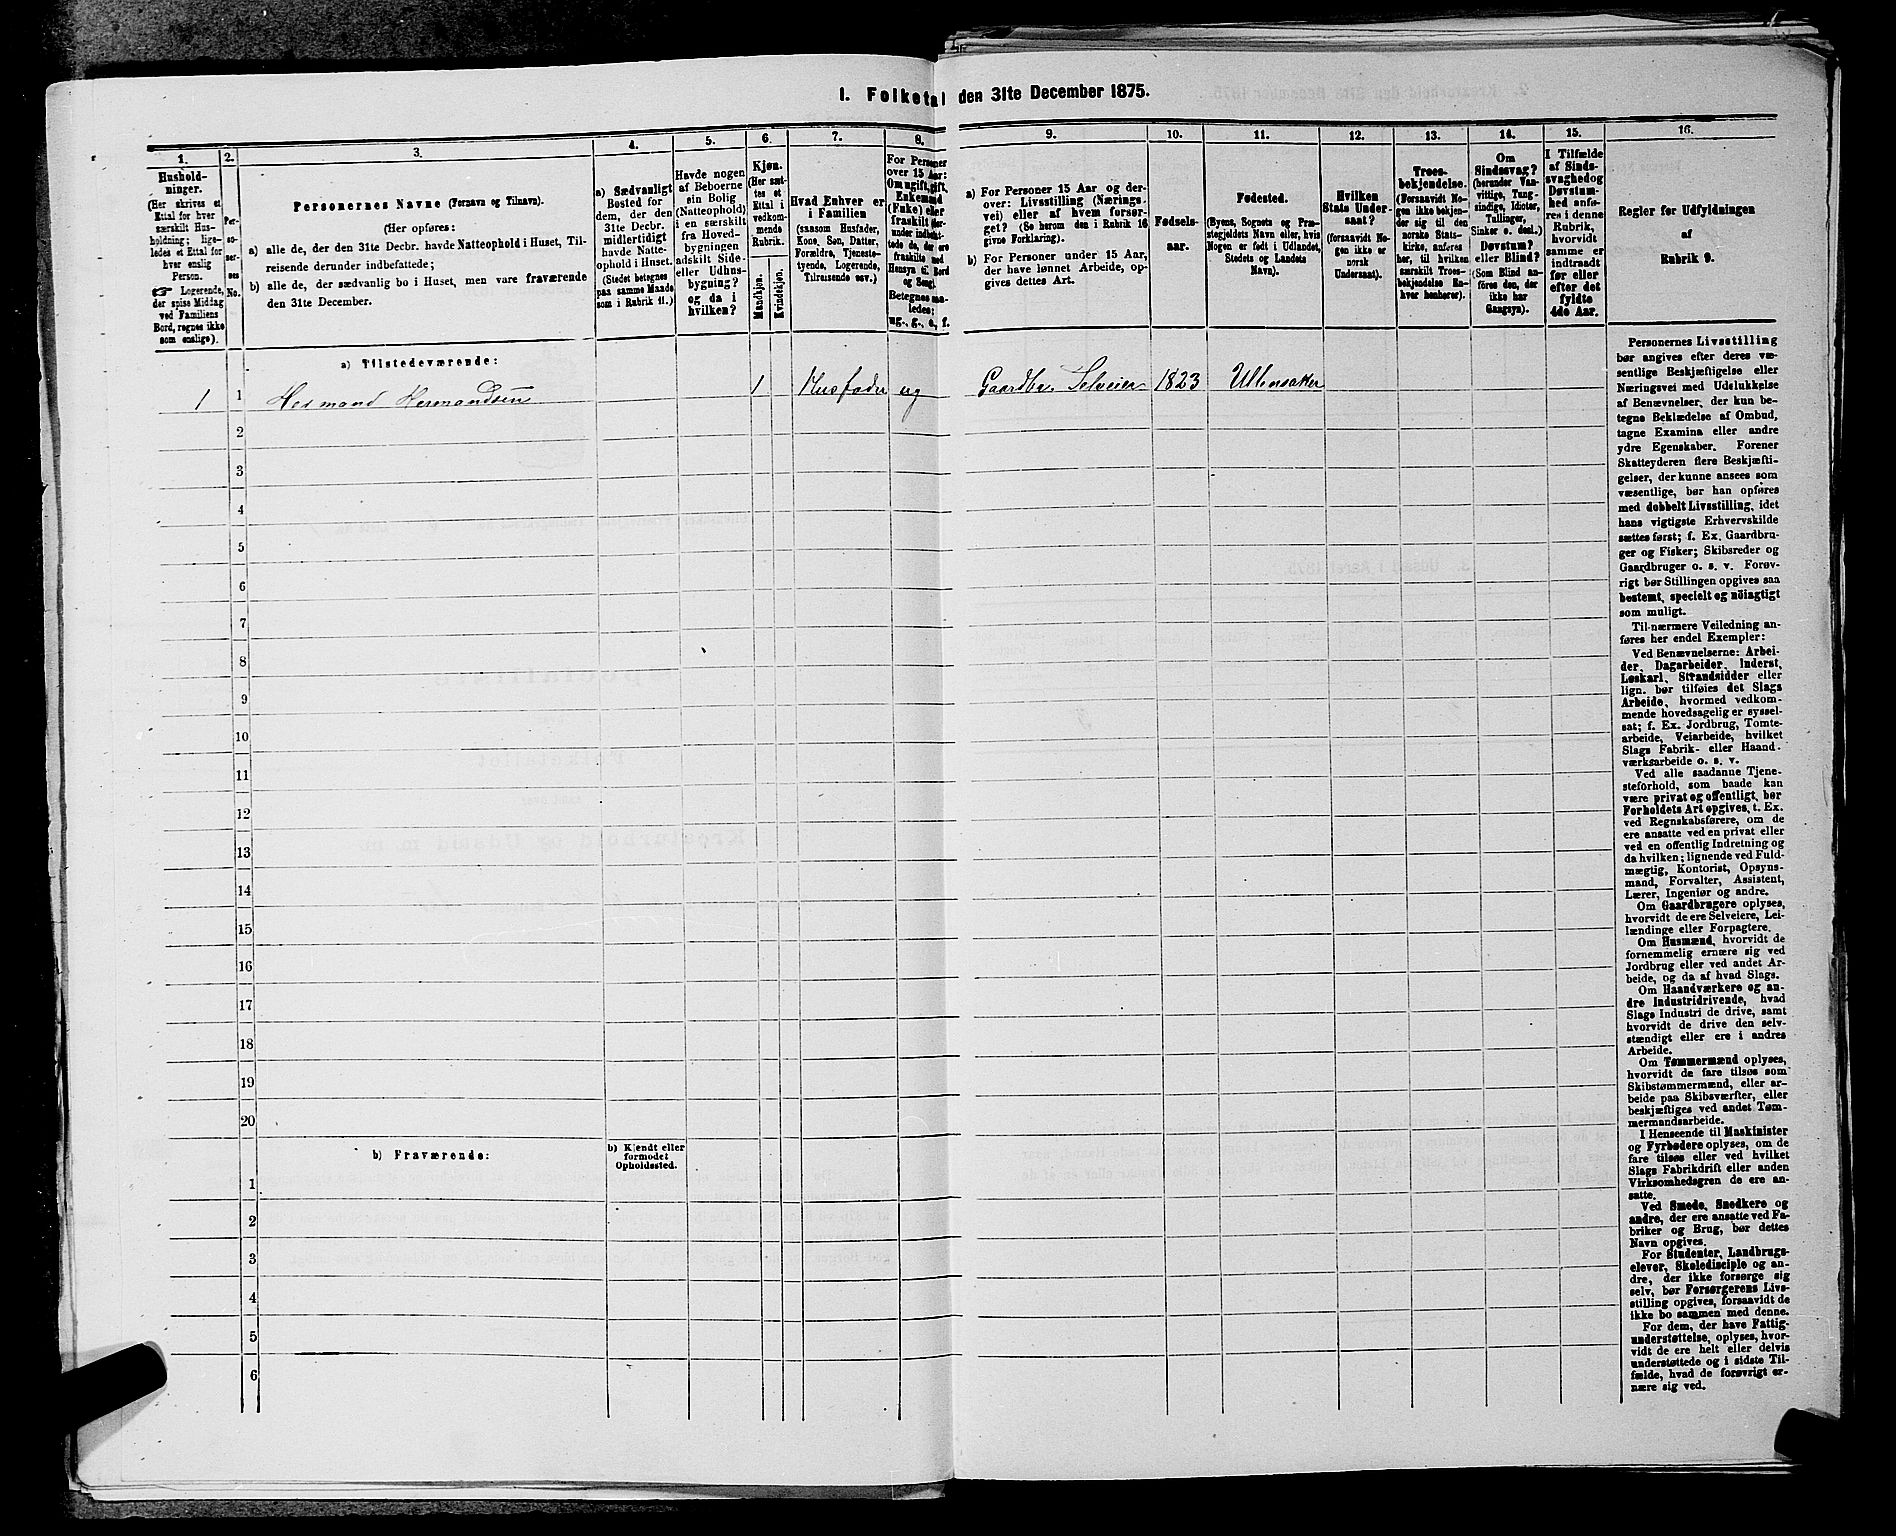 1. Folketal den 31te December 1875.
1.
Hushold-
ninger.
(Her skrives et
Ettal for hver
særskilt Hus-
holdning; lige-
ledes et Ettal for
hver enslig
Person.
☞ Logerende,
der spise Middag
ved Familiens
Bord, regnes ikke
som enslige).
2.
Per-
so-
ner-
nes
No.
3.
Personernes Navne (Fornavn og Tilnavn).
(Her opføres:
a) alle de, der den 31te Decbr. havde Natteophold i Huset, Til-
reisende derunder indbefattede;
b) alle de, der sædvanlig bo i Huset, men vare fraværende
den 31te December.
4.
a) Sædvanligt
Bosted for
dem, der den
31te Decbr.
midlertidigt
havde Natte-
ophold i Huset.
(Stedet betegnes
paa samme Maade
som i Rubrik 11.)
5.
Havde nogen
af Beboerne
sin Bolig
(Natteophold)
i en særskilt
fra Hoved-
bygningen
adskilt Side-
eller Udhus-
bygning?
og da i
hvilken?
6.
Kjøn.
(Her sæt-
tes et
Ettal i
vedkom-
mende
Rubrik.
Mandkjøn.
Kvindekjøn.
7.
Hvad Enhver er
i Familien
(saasom Husfader,
Kone, Søn, Datter,
Forældre, Tjeneste-
tyende, Logerende,
Tilreisende osv.)
8.
For Personer
over 15 Aar:
Om ugift, gift,
Enkemand
(Enke) eller
fraskilt
Betegnes saa-
ledes:
ug., g., e., f.
9.
a) For Personer 15 Aar og der-
over: Livsstilling (Nærings-
vei) eller af hvem forsør-
get? (Se herom den i Rubrik 16
givne Forklaring).
b) For Personer under 15 Aar,
der have lønnet Arbeide, op-
gives dettes Art.
10.
Fødsels-
aar.
11.
Fødested.
(Byens, Sognets og Præ-
stegjeldets Navn eller, hvis
Nogen er født i Udlandet,
Stedets og Landets
Navn).
12.
Hvilken
Stats Under-
saat?
(forsaavidt No-
gen ikke er
norsk
Undersaat).
13.
Troes-
bekjendelse.
(Forsaavidt No-
gen ikke bekjen-
der sig til den
norske Stats-
kirke, anføres
her, til hvilken
særskilt Troes-
bekjendelse En-
hver henhører).
14.
Om
Sindssvag?
(herunder Van-
vittige, Tung-
sindige, Idioter,
Tullinger,
Sinker o. desl.)
Døvstum?
eller Blind?
(Som Blind an-
føres den, der
ikke har
Gangsyn).
15.
I Tilfælde
af Sinds-
svaghed og
Døvstum-
hed anfø-
res i denne
Rubrik,
hvorvidt
samme er
indtraadt
før eller
efter det
fyldte
4de Aar.
16.
Regler for Udfyldningen
af
Rubrik 9.
a) Tilstedeværende:
1 1 Hermand Hermandsen 1 Husfader ug Gaardbr. Selveier 1823 Ullensaker
2
3
4
5
6
7
8
9
10
11
12
13
14
15
16
17
18
19
20
b) Fraværende:
b) Kjendt eller
formodet
Opholdssted.
1
2
3
4
5
6
Personernes Livsstilling
bør angives efter deres væ-
sentlige Beskjæftigelse eller
Næringsvei med Udelukkelse
af Benævnelser, der kun be-
tegne Beklædelse af Ombud,
tagne Examina eller andre
ydre Egenskaber. Forener
Skatteyderen flere Beskjæfti-
gelser, der kunne ansees som
væsentlige, bør han opføres
med dobbelt Livsstilling, idet
hans vigtigste Erhvervskilde
sættes først; f. Ex. Gaardbru-
ger og Fisker; Skibsreder og
Gaardbruger o. s. v. Forøv-
rigt bør Stillingen opgives saa
bestemt, specielt og nöiagtigt
som muligt.
Til nærmere Veiledning an-
føres her endel Exempler:
Ved Benævnelserne: Arbei-
der, Dagarbeider, Inderst,
Løskarl, Strandsidder eller
lign. bør tilføies det Slags
Arbeide, hvormed vedkom-
mende hovedsagelig er syssel-
sat; f. Ex. Jordbrug, Tomte-
arbeide, Veiarbeide, hvilket
Slags Fabrik- eller Haand-
værksarbeide o. s. v.
Ved alle saadanne Tjene-
steforhold, som baade kan
være privat og offentligt, bør
Forholdets Art opgives, t. Ex.
ved Regnskabsførere, om de
ere ansatte ved en privat eller
ved en offentlig Indretning og
da hvilken; lignende ved Fuld-
mægtig, Kontorist, Opsyns-
mand, Forvalter, Assistent,
Lærer, Ingeniør og andre.
Om Gaardbrugere oplyses,
hvorvidt de ere Selveiere, Lei-
lændinge eller Forpagtere.
Om Husmænd, hvorvidt de
fornemmelig ernære sig ved
Jordbrug eller ved andet Ar-
beide, og da af hvad Slags.
Om Haandværkere og an-
dre Industridrivende, hvad
Slags Industri de drive, samt
hvorvidt de drive den selv-
stændigt eller ere i andres
Arbeide.
Om Tømmermænd oplyses,
hvorvidt de fare tilsøs som
Skibstømmermænd, eller ar-
beide paa Skibsværfter, eller
beskjæftiges ved andet Tøm-
mermandsarbeide.
I Henseende til Maskinister
og Fyrbødere oplyses, om de
fare tilsøs eller ved hvilket
Slags Fabrikdrift eller anden
Virksomhedsgren de ere an-
satte.
Ved Smede, Snedkere og
andre, der ere ansatte ved Fa-
briker og Brug, bør dettes
Navn opgives.
For Studenter, Landbrugs-
elever, Skoledisciple og an-
dre, der ikke forsørge sig
selv, bør Forsørgerens Livs-
stilling opgives, forsaavidt de
ikke bo sammen med denne.
For dem, der have Fattig-
understøttelse, oplyses, hvor-
vidt de ere helt eller delvis
understøttede og i sidste Til-
fælde, hvad de forøvrigt er-
nære sig ved.